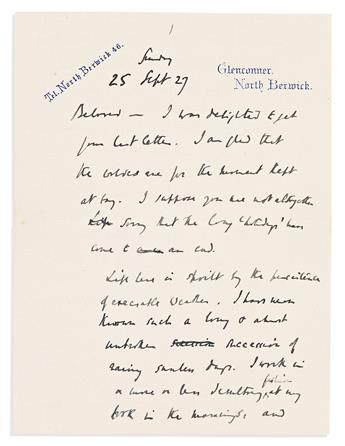 1
Tel. North Berwick 46.
Glenconner.
North Berwick.
Sunday
25 Sept 27
Beloved — I was delighted to get
your last letter. I am glad that
the wolves are for the moment kept
at bay. I suppose you are not altogether
sorry that the long 'holidays' have
come to an end.
Life here is spoilt by the persistence
of execrable weather. I have never
known such a long & almost
unbroken succession of
rainy sunless days. I work in
a more or less desultory fashion, at my
book in the mornings, and